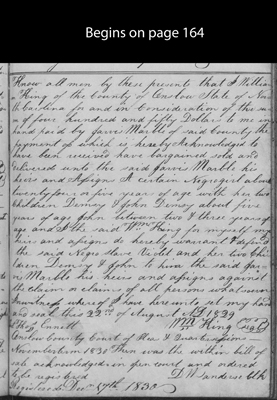 Begins on page 164
Know all men by these present that I William
King of the County of Onslow State of Nor
th Carolina for and in Consideration of the sum
of four hundred and fifty Dollars to me in
hand paid by Jarvis Marble of said County the
payment of which is hereby Acknowledged to
have been received have bargained sold and
delivered unto the said Jarvis Marble his
heirs and assigns A certain Negro girl about
twenty four or five years of age with her two
Children Demcy & John Demcy about five
years of age John between two & three years of
age and I the said Wm King for myself my
heirs and assigns do hereby warrant & defend
the said Negro Slave Violet and her two Chil
dren Demcy & John to him the said Jar
vis Marble his Heirs and assigns against
the claim or claims of all persons whatsoever
In witness whereof I have hereunto set my hand
and seal this 22nd of August AD 1829
Ennett Wm King Seal
Onslow County Court of Pleas & Quarter Sessions
November term 1830 Then was the within bill of
sale acknowledged in open court and ordered
to be registered
Registered Decr 17th 1830